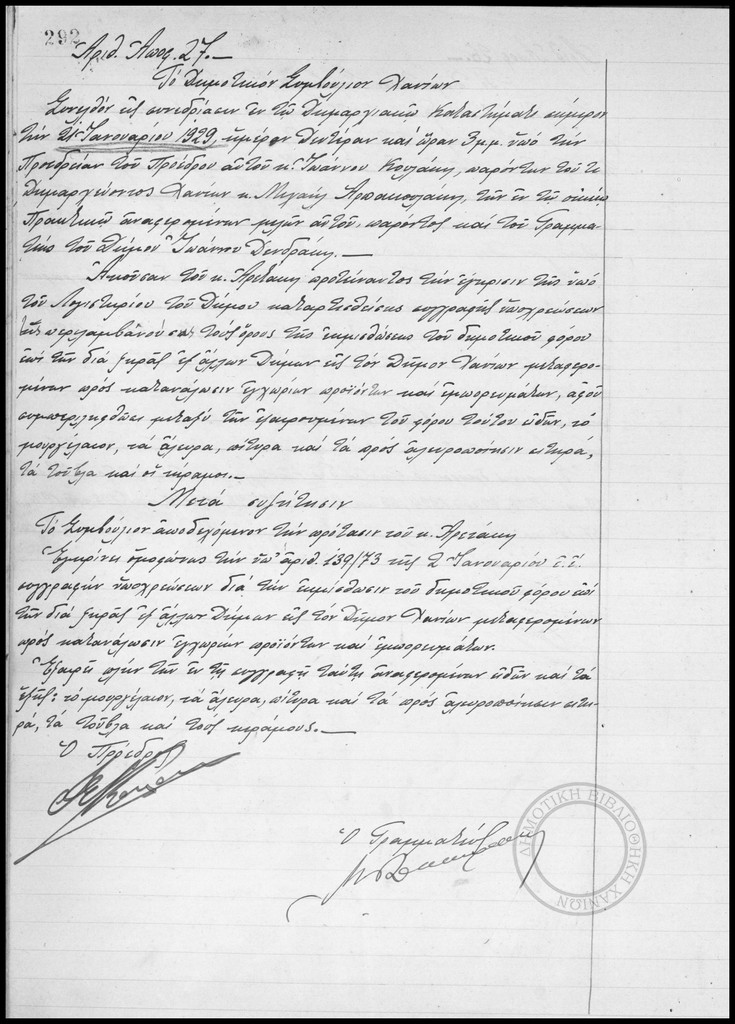 292
Ἀριθ. Ἀποφ. 27.—
Τὸ Δημοτικόν Συμβούλιον Χανίων
Συνελθὸν εἰς συνεδρίασιν ἐν τῷ Δημαρχιακῷ Καταστήματι σήμερον
τὴν 21 Ἰανουαρίου 1929, ἡμέραν Δευτέραν καὶ ὥραν 3 μμ. ὑπό τὴν
Προεδρείαν τοῦ Προέδρου αὐτοῦ κ. Ἰωάννου παρόντων τοῦ τε
Δημαρχεύοντος Χανίων κ. Μιχαὴλ τῶν ἐν τῷ οἰκείῳ
Πρακτικῷ ἀναφερομένων μελῶν αὐτοῦ, παρόντος καὶ τοῦ Γραμμα-
τέως τοῦ Δήμου Ἰωάννου Δενδράκη.—
Ἀκοῦσαν τοῦ κ. Ἀρετάκη προτείναντος τὴν ἔγκρισιν τῆς ὑπό
τοῦ Λογιστηρίου τοῦ Δήμου καταρτισθείσης συγγραφῆς ὑποχρεώσεων
τοὺς ὅρους τῆς ἐκμισθώσεως τοῦ δημοτικοῦ φόρου
ἐπί τῶν διά ξηρᾶς ἐξ ἄλλων Δήμων εἰς τόν Δῆμον Χανίων μεταφερο-
μένων πρός κατανάλωσιν ἐγχωρίων προϊόντων καί ἐμπορευμάτων, ἀφοῦ
συμπεριληφθῶσι μεταξύ τῶν ἐξαιρουμένων τοῦ φόρου τούτου εἰδῶν, τό
μουργέλαιον, τά ἄλευρα, πίτυρα καί τά πρός ἀλευροποίησιν σιτηρά,
τά τοῦβλα καί οἱ κέραμοι.—
Μετά συζήτησιν
Τό Συμβούλιον ἀποδεχόμενον τήν πρότασιν τοῦ κ. Ἀρετάκη
Ἐγκρίνει ὁμοφώνως τήν ὑπ' ἀριθ. 139/73 τῆς 2 Ἰανουαρίου ἔ.ἔ.
συγγραφήν ὑποχρεώσεων διά τήν ἐκμίσθωσιν τοῦ δημοτικοῦ φόρου ἐπί
τῶν διά ξηρᾶς ἐξ ἄλλων Δήμων εἰς τόν Δῆμον Χανίων μεταφερομένων
πρός κατανάλωσιν ἐγχωρίων προϊόντων καί ἐμπορευμάτων.
Ἐξαιρεῖ πλήν τῶν ἐν τῇ συγγραφῇ ταύτῃ ἀναφερομένων εἰδῶν καί τά
ἑξῆς: τό μουργέλαιον, τά ἄλευρα, πίτυρα καί τά πρός ἀλευροποίησιν σιτη-
ρά, τά τοῦβλα καί τούς κεράμους.—
Ὁ Πρόεδρος
Ὁ Γραμματεύς
ΔΗΜΟΤΙΚΗ ΒΙΒΛΙΟΘΗΚΗ ΧΑΝΙΩΝ